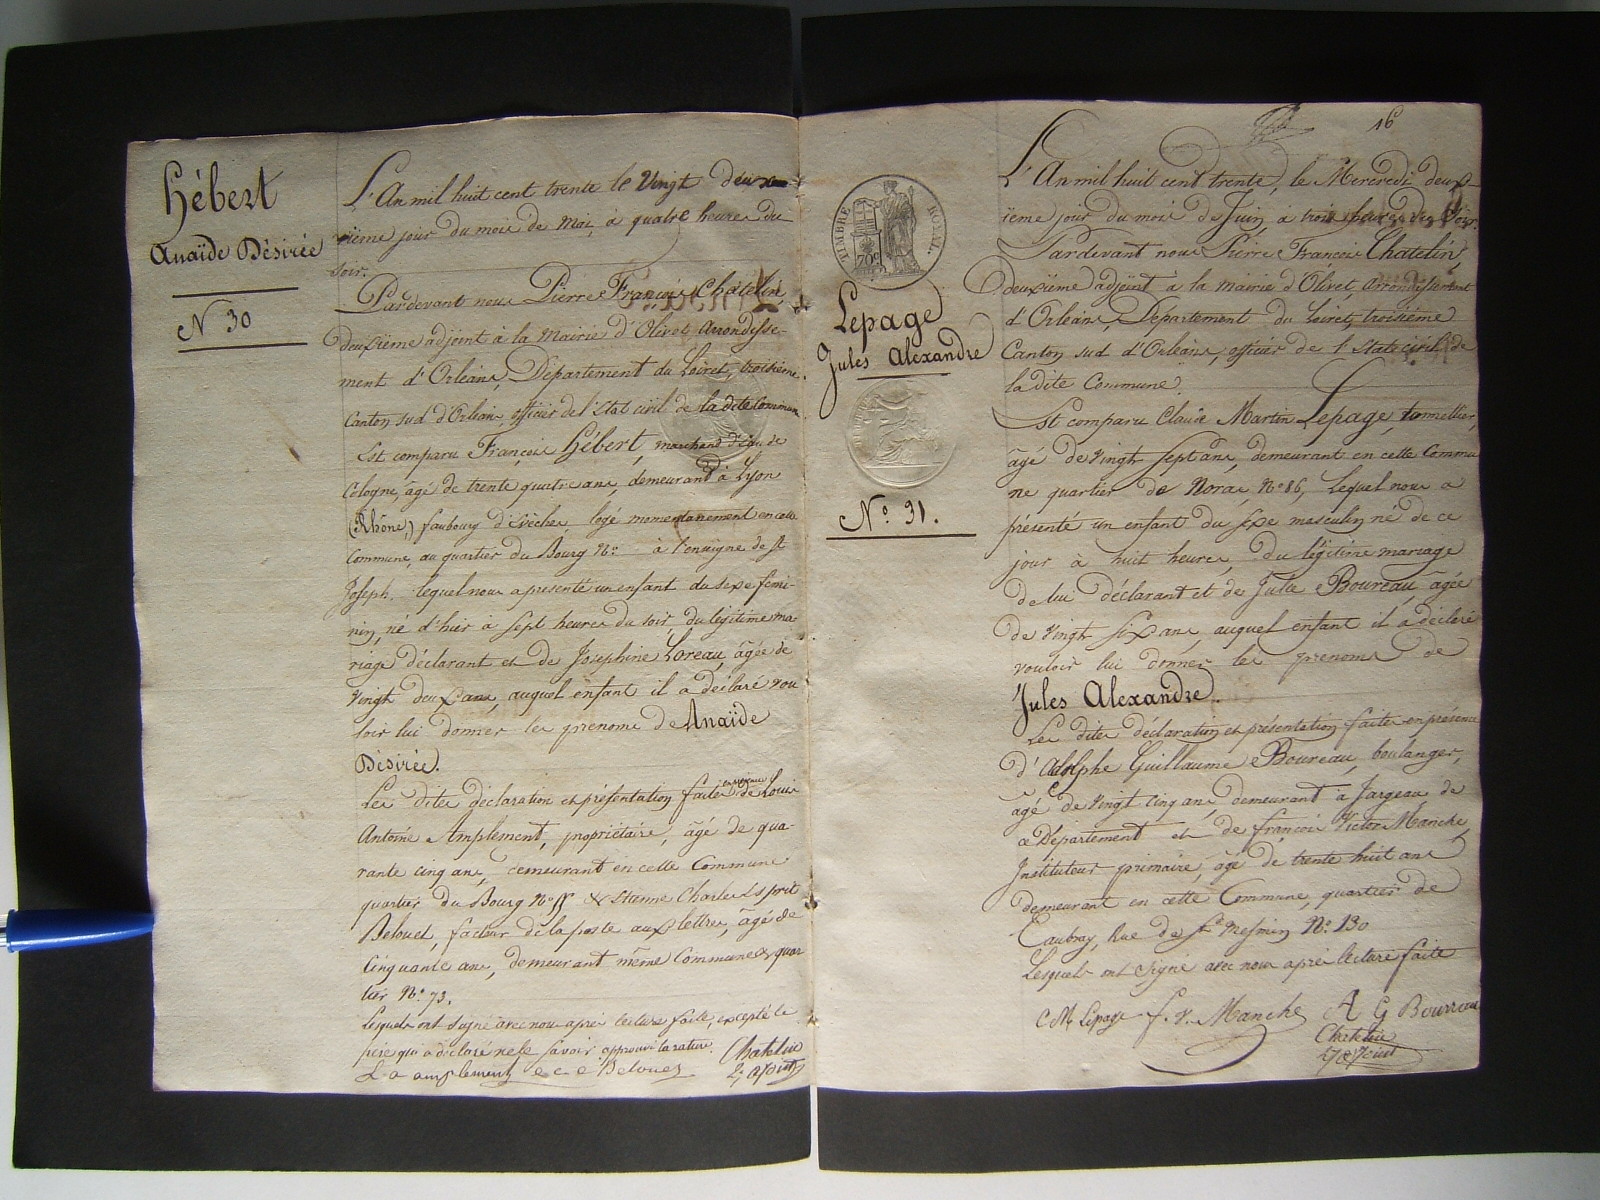 Hébert
Anaïde Désirée
N 30
L'An mil huit cent trente le Vingt deux
xième jour du mois de Mai, à quatre heures du
soir.
Pardevant nous Pierre François Chatelin,
deuxième adjoint à la Mairie d'Olivet arrondisse-
ment d'Orléans, Département du Loiret, troisième
Canton sud d'Orléans, officier de l'Etat civil de la dite Commune
Est comparu François Hébert, marchand d'Eau de
Cologne, âgé de trente quatre ans, demeurant à Lyon
(Rhône,) faubourg d' logé momentanement en cette
Commune, au quartier du Bourg No à l'enseigne de St
Joseph. lequel nous a presenté un enfant du sexe femi-
nin, né d'hier à sept heures du soir, du légitime ma-
riage déclarant et de Josephine Loreau, âgée de
Vingt deux ans, auquel enfant il a déclaré vou
loir lui donner les prenoms de Anaïde
Désirée.
Les dites déclaration et présentation faites en présence de Louis
Antoine Amplement, propriétaire, âgé de qua-
rante cinq ans, demeurant en cette Commune
quartier du Bourg No & Etienne Charles Esprit
Belouet, facteur de la poste aux lettres, âgé de
Cinquante ans, demeurant même Commune & quar
tier No 73.
Lesquels ont signé avec nous après lecture faite, excepté le
père qui a déclaré ne le savoir. approuvé la rature.
Chatelin
L a amplement e c e Belouet
2e adjoint
16
TIMBRE ROYAL
70c
Lepage
Jules Alexandre
No. 31.
L'An mil huit cent trente, le Mercredi deux-
ième jour du mois de Juin, à trois heures du Soir.
Pardevant nous Pierre François Chatelin,
deuxième adjoint à la mairie d'Olivet, arrondissement
d'Orléans, Département du Loiret, troisième
Canton sud d'Orléans, officier de l'Etat civil de
la dite Commune
Est comparu Claude Martin Lepage, tonnellier,
âgé de Vingt Sept ans, demeurant en cette Commu
ne quartier de Noras, No 86, Lequel nous a
présenté un enfant du sexe masculin né de ce
jour à huit heures, du légitime mariage
de lui déclarant et de Julie Boureau, âgée
de vingt six ans, auquel enfant il a déclaré
vouloir lui donner les prenoms de
Jules Alexandre.
Les dites déclaration et présentation faites en présence
d'Adolphe Guillaume Boureau, boulanger,
âgé de Vingt cinq ans demeurant à Jargeau de
ce Département et de françois Victor Manche,
Instituteur primaire, âgé de trente huit ans
demeurant en cette Commune, quartier de
Caubray, Rue de St Mesmin No. 130
Lesquels ont signé avec nous après lecture faite
C M Lepage f. v. Manche A G Bourreau
Chatelin
2e adjoint